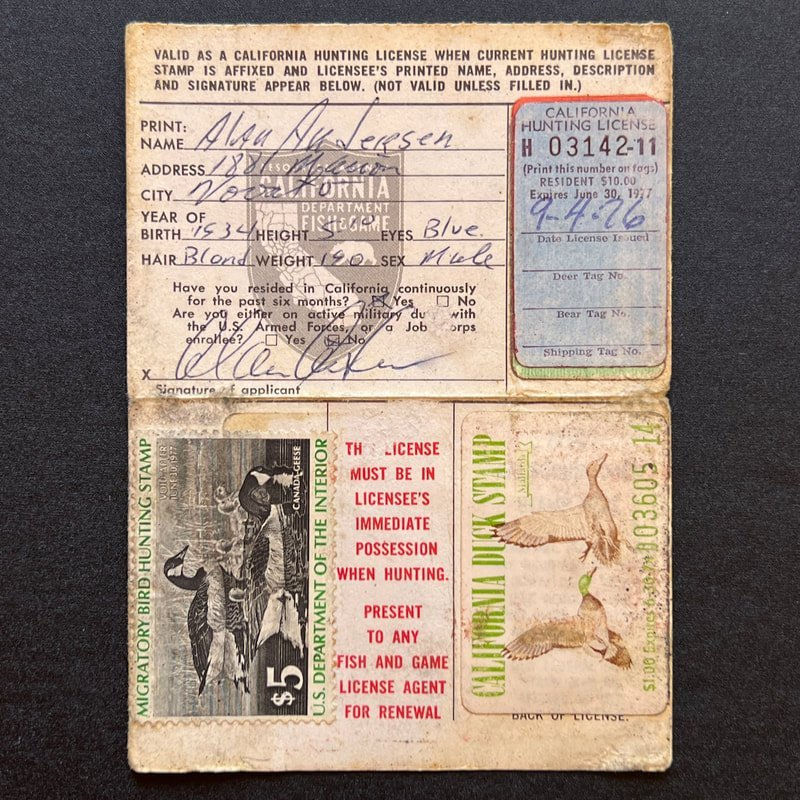 VALID AS A CALIFORNIA HUNTING LICENSE WHEN CURRENT HUNTING LICENSE
STAMP IS AFFIXED AND LICENSEE'S PRINTED NAME, ADDRESS, DESCRIPTION
AND SIGNATURE APPEAR BELOW. (NOT VALID UNLESS FILLED IN.)
PRINT:
NAME Alan Andersen
ADDRESS 1881 Marion
CITY Novato
YEAR OF
BIRTH 1934 HEIGHT 5-10 EYES Blue
HAIR Blond WEIGHT 190 SEX Male
CALIFORNIA
DEPARTMENT
FISH & GAME
Have you resided in California continuously
for the past six months? Yes No
Are you either on active military duty with
the U.S. Armed Forces, or a Job Corps
enrollee? Yes No
X
Signature of applicant
CALIFORNIA
HUNTING LICENSE
H 03142-11
(Print this number on tags)
RESIDENT $10.00
Expires June 30, 1977
9-4-76
Date License Issued
Deer Tag No.
Bear Tag No.
Shipping Tag No.
MIGRATORY BIRD HUNTING STAMP
VOID AFTER
JUNE 30, 1977
CANADA GEESE
$5
U.S. DEPARTMENT OF THE INTERIOR
TH LICENSE
MUST BE IN
LICENSEE'S
IMMEDIATE
POSSESSION
WHEN HUNTING.
PRESENT
TO ANY
FISH AND GAME
LICENSE AGENT
FOR RENEWAL
CALIFORNIA DUCK STAMP
803605 14
$1.00 Expires
BACK OF LICENSE.